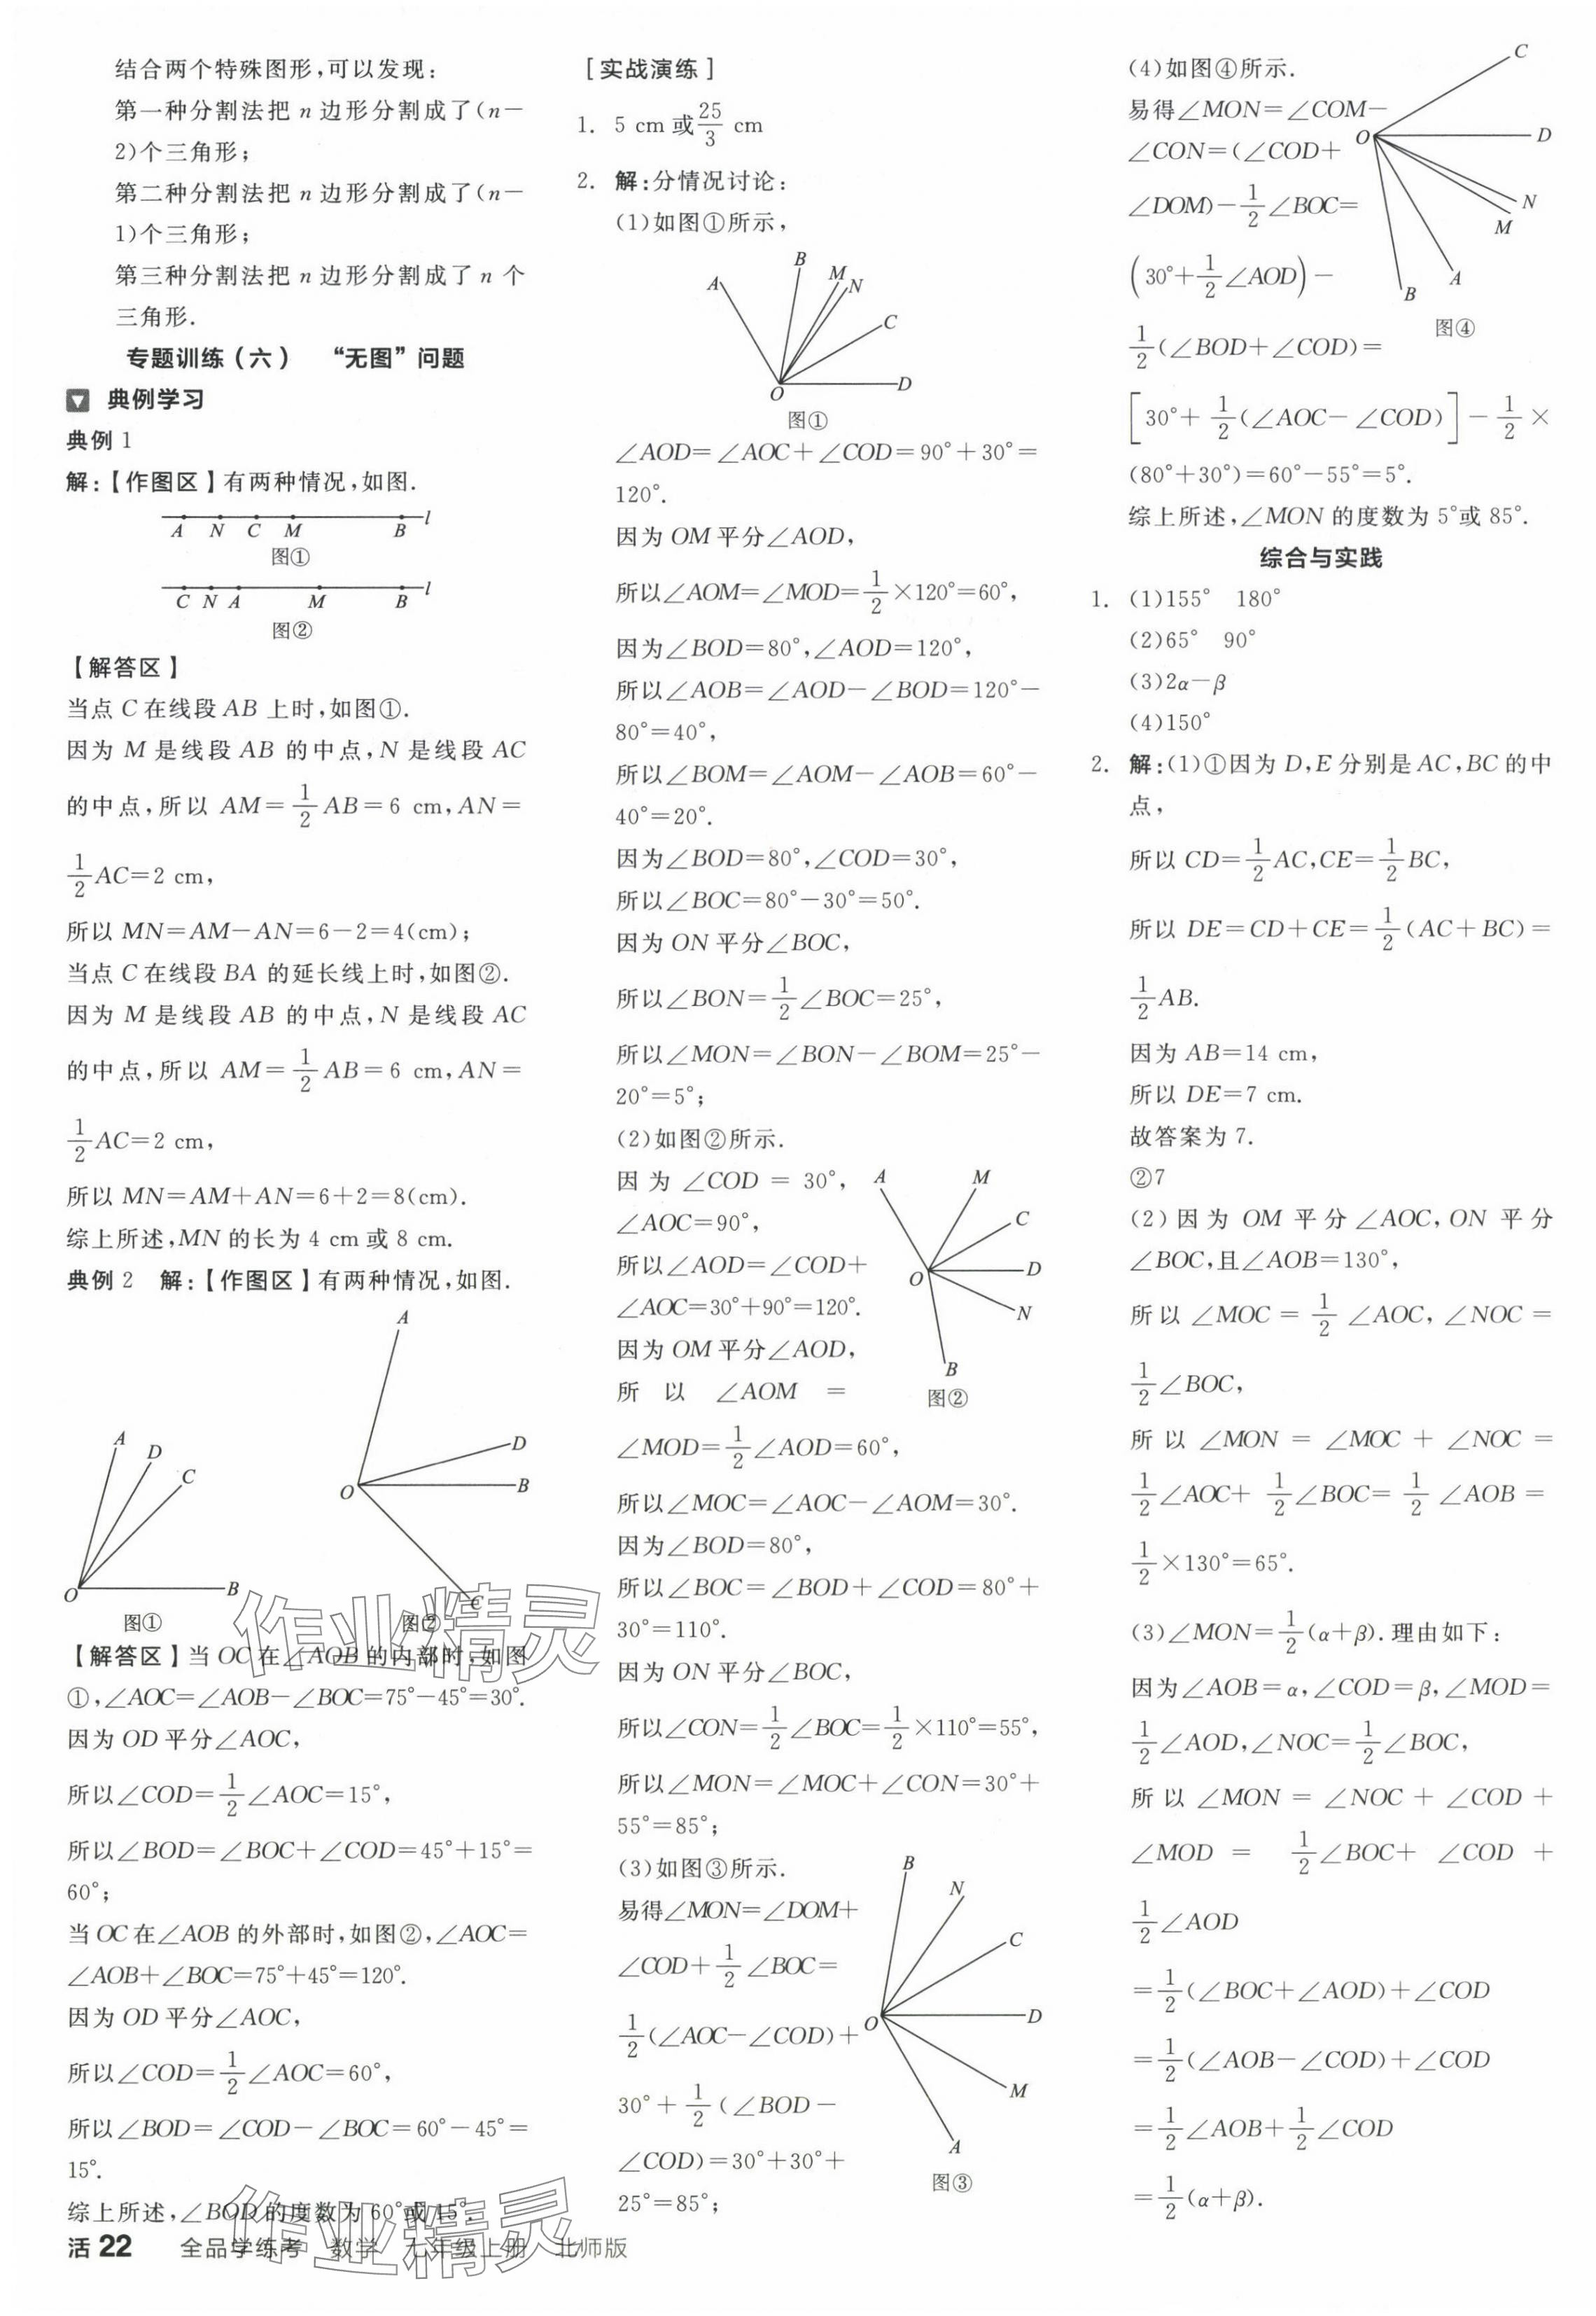 结合两个特殊图形,可以发现:
第一种分割法把 n 边形分割成了(n-
2)个三角形;
第二种分割法把 n 边形分割成了(n-
1)个三角形;
第三种分割法把 n 边形分割成了 n 个
三角形.
专题训练(六) “无图”问题
典例学习
典例 1
解:【作图区】有两种情况,如图.
A N C M B l
图①
C N A M B l
图②
【解答区】
当点 C 在线段 AB 上时,如图①.
因为 M 是线段 AB 的中点,N 是线段 AC
的中点,所以 AM=1/2 AB=6 cm,AN=
1/2 AC=2 cm,
所以 MN=AM-AN=6-2=4(cm);
当点 C 在线段 BA 的延长线上时,如图②.
因为 M 是线段 AB 的中点,N 是线段 AC
的中点,所以 AM=1/2 AB=6 cm,AN=
1/2 AC=2 cm,
所以 MN=AM+AN=6+2=8(cm).
综上所述,MN 的长为 4 cm 或 8 cm.
典例 2 解:【作图区】有两种情况,如图.
A D C O B
图①
A D B O C
图②
【解答区】当 OC 在∠AOB 的内部时,如图
①,∠AOC=∠AOB-∠BOC=75°-45°=30°.
因为 OD 平分∠AOC,
所以∠COD=1/2∠AOC=15°,
所以∠BOD=∠BOC+∠COD=45°+15°=
60°;
当 OC 在∠AOB 的外部时,如图②,∠AOC=
∠AOB+∠BOC=75°+45°=120°.
因为 OD 平分∠AOC,
所以∠COD=1/2∠AOC=60°,
所以∠BOD=∠COD-∠BOC=60°-45°=
15°.
综上所述,∠BOD 的度数为 60°或 15°.
[实战演练]
1. 5 cm 或 25/3 cm
2. 解:分情况讨论:
(1)如图①所示,
A B M N C O D
图①
∠AOD=∠AOC+∠COD=90°+30°=
120°.
因为 OM 平分∠AOD,
所以∠AOM=∠MOD=1/2×120°=60°,
因为∠BOD=80°,∠AOD=120°,
所以∠AOB=∠AOD-∠BOD=120°-
80°=40°,
所以∠BOM=∠AOM-∠AOB=60°-
40°=20°.
因为∠BOD=80°,∠COD=30°,
所以∠BOC=80°-30°=50°.
因为 ON 平分∠BOC,
所以∠BON=1/2∠BOC=25°,
所以∠MON=∠BON-∠BOM=25°-
20°=5°;
(2)如图②所示.
因为∠COD = 30°,
∠AOC=90°,
所以∠AOD=∠COD+
∠AOC=30°+90°=120°.
因为 OM 平分∠AOD,
所以 ∠AOM =
A M C D O N B
图②
∠MOD=1/2∠AOD=60°,
所以∠MOC=∠AOC-∠AOM=30°.
因为∠BOD=80°,
所以∠BOC=∠BOD+∠COD=80°+
30°=110°.
因为 ON 平分∠BOC,
所以∠CON=1/2∠BOC=1/2×110°=55°,
所以∠MON=∠MOC+∠CON=30°+
55°=85°;
(3)如图③所示.
易得∠MON=∠DOM+
∠COD+1/2∠BOC=
1/2(∠AOC-∠COD)+
30°+1/2(∠BOD-
∠COD)=30°+30°+
25°=85°;
B N C O D M A
图③
(4)如图④所示.
易得∠MON=∠COM-
∠CON=(∠COD+
∠DOM)-1/2∠BOC=
(30°+1/2∠AOD)-
1/2(∠BOD+∠COD)=
C O D N M A B
图④
[30°+1/2(∠AOC-∠COD)]-1/2×
(80°+30°)=60°-55°=5°.
综上所述,∠MON 的度数为 5°或 85°.
综合与实践
1. (1)155° 180°
(2)65° 90°
(3)2α-β
(4)150°
2. 解:(1)①因为 D,E 分别是 AC,BC 的中
点,
所以 CD=1/2 AC,CE=1/2 BC,
所以 DE=CD+CE=1/2(AC+BC)=
1/2 AB.
因为 AB=14 cm,
所以 DE=7 cm.
故答案为 7.
②7
(2)因为 OM 平分∠AOC,ON 平分
∠BOC,且∠AOB=130°,
所以∠MOC=1/2∠AOC,∠NOC=
1/2∠BOC,
所以∠MON=∠MOC+∠NOC=
1/2∠AOC+1/2∠BOC=1/2∠AOB=
1/2×130°=65°.
(3)∠MON=1/2(α+β).理由如下:
因为∠AOB=α,∠COD=β,∠MOD=
1/2∠AOD,∠NOC=1/2∠BOC,
所以∠MON=∠NOC+∠COD+
∠MOD=1/2∠BOC+∠COD+
1/2∠AOD
=1/2(∠BOC+∠AOD)+∠COD
=1/2(∠AOB-∠COD)+∠COD
=1/2∠AOB+1/2∠COD
=1/2(α+β).
活 22 全品学练考 数学 七年级上册 北师版
作业精灵
作业精灵